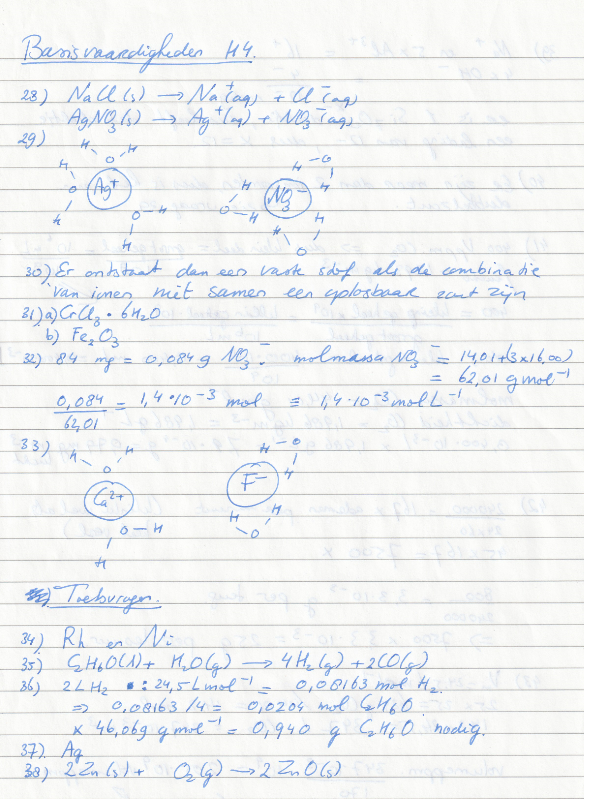 Basisvaardigheden H4.
28) NaCl(s) → Na⁺(aq) + Cl⁻(aq)
AgNO₃(s) → Ag⁺(aq) + NO₃⁻(aq)
29)
H O H
H O H
Ag⁺
O-H
H
H-O
H
O-H
H
NO₃⁻
H
H
O
30) Er ontstaat dan een vaste stof als de combinatie
van ionen niet samen een oplosbaar zout zijn
31) a) CrCl₃ • 6H₂O
b) Fe₂O₃
32) 84 mg = 0,084 g NO₃⁻. molmassa NO₃⁻ = 14,01+(3×16,00)
= 62,01 g mol⁻¹
0,084/62,01 = 1,4•10⁻³ mol ≡ 1,4•10⁻³ mol L⁻¹
33)
H O H
Ca²⁺
O-H
H
H-O
H
F⁻
H H
O
Toetsvragen.
34) Rh en Ni
35) C₂H₆O(l) + H₂O(g) → 4H₂(g) + 2CO(g)
36) 2L H₂ : 24,5 L mol⁻¹ = 0,08163 mol H₂.
⇒ 0,08163/4 = 0,0204 mol C₂H₆O
× 46,069 g mol⁻¹ = 0,940 g C₂H₆O nodig.
37) Ag
38) 2Zn(s) + O₂(g) → 2ZnO(s)